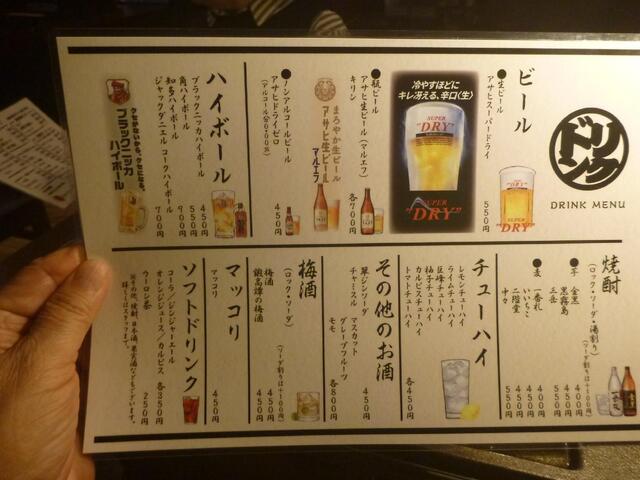 ドリンク
DRINK MENU
ビール
●生ビール
アサヒスーパードライ
550円
冷やすほどに
キレ冴える、辛口〈生〉
SUPER
"DRY"
SUPER
"DRY"
SUPER
"DRY"
●瓶ビール
アサヒ生ビール(マルエフ)
キリン
各700円
まろやか生ビール
アサヒ生ビール
マルエフ
●ノンアルコールビール
アサヒドライゼロ
(アルコール分0.00%)
450円
ハイボール
ブラックニッカハイボール
450円
角ハイボール
550円
知多ハイボール
900円
ジャックダニエル コークハイボール
700円
クセがないから、クセになる。
ブラックニッカ
ハイボール
焼酎
(ロック・ソーダ・湯割り)
(ソーダ割りは+100円)
●芋 金黒
450円
黒霧島
450円
三岳
550円
●麦 一番札
400円
いいちこ
450円
二階堂
450円
中々
550円
チューハイ
レモンチューハイ
ライムチューハイ
巨峰チューハイ
柚子チューハイ
カルピスチューハイ
トマトチューハイ
各450円
その他のお酒
翠ジンソーダ
450円
チャミスル マスカット
グレープフルーツ
モモ
各800円
梅酒
(ロック・ソーダ)
(ソーダ割りは+100円)
梅酒
450円
鍛高譚の梅酒
450円
マッコリ
マッコリ
450円
ソフトドリンク
コーラ/ジンジャーエール
オレンジジュース/カルピス
各350円
ウーロン茶
250円
※その他、焼酎、日本酒、果実酒などもございます。
詳しくはスタッフまで。